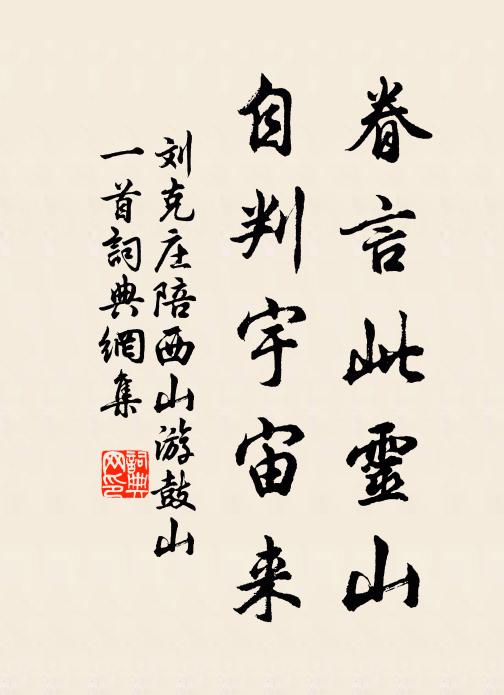 眷言此靈山
自判宇宙来
刘克庄陪西山游鼓山
一首詞典網集
詞典网印